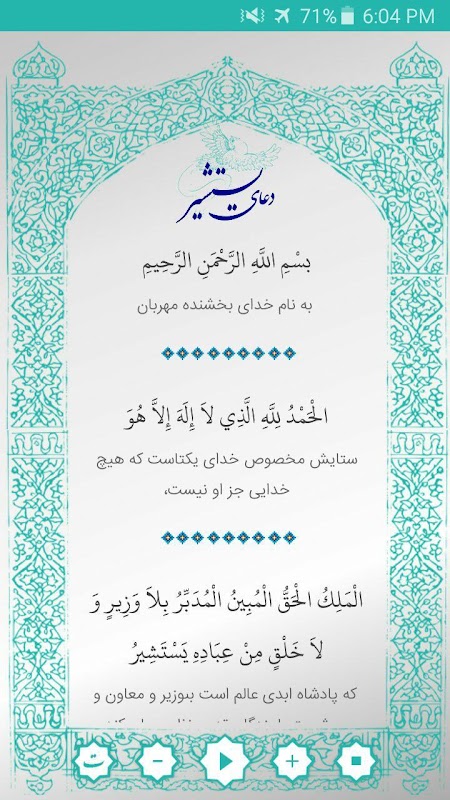 71% 6:04 PM
دعای یستشیر
بِسْمِ اللَّهِ الرَّحْمَنِ الرَّحِيمِ
به نام خدای بخشنده مهربان
الْحَمْدُ لِلَّهِ الَّذِي لاَ إِلَهَ إِلاَّ هُوَ
ستایش مخصوص خدای یکتاست که هیچ
خدایی جز او نیست،
الْمَلِكُ الْحَقُّ الْمُبِينُ الْمُدَبِّرُ بِلاَ وَزِيرٍ وَ
لاَ خَلْقٍ مِنْ عِبَادِهِ يَسْتَشِيرُ
که پادشاه ابدی عالم است بیوزیر و معاون و
ت